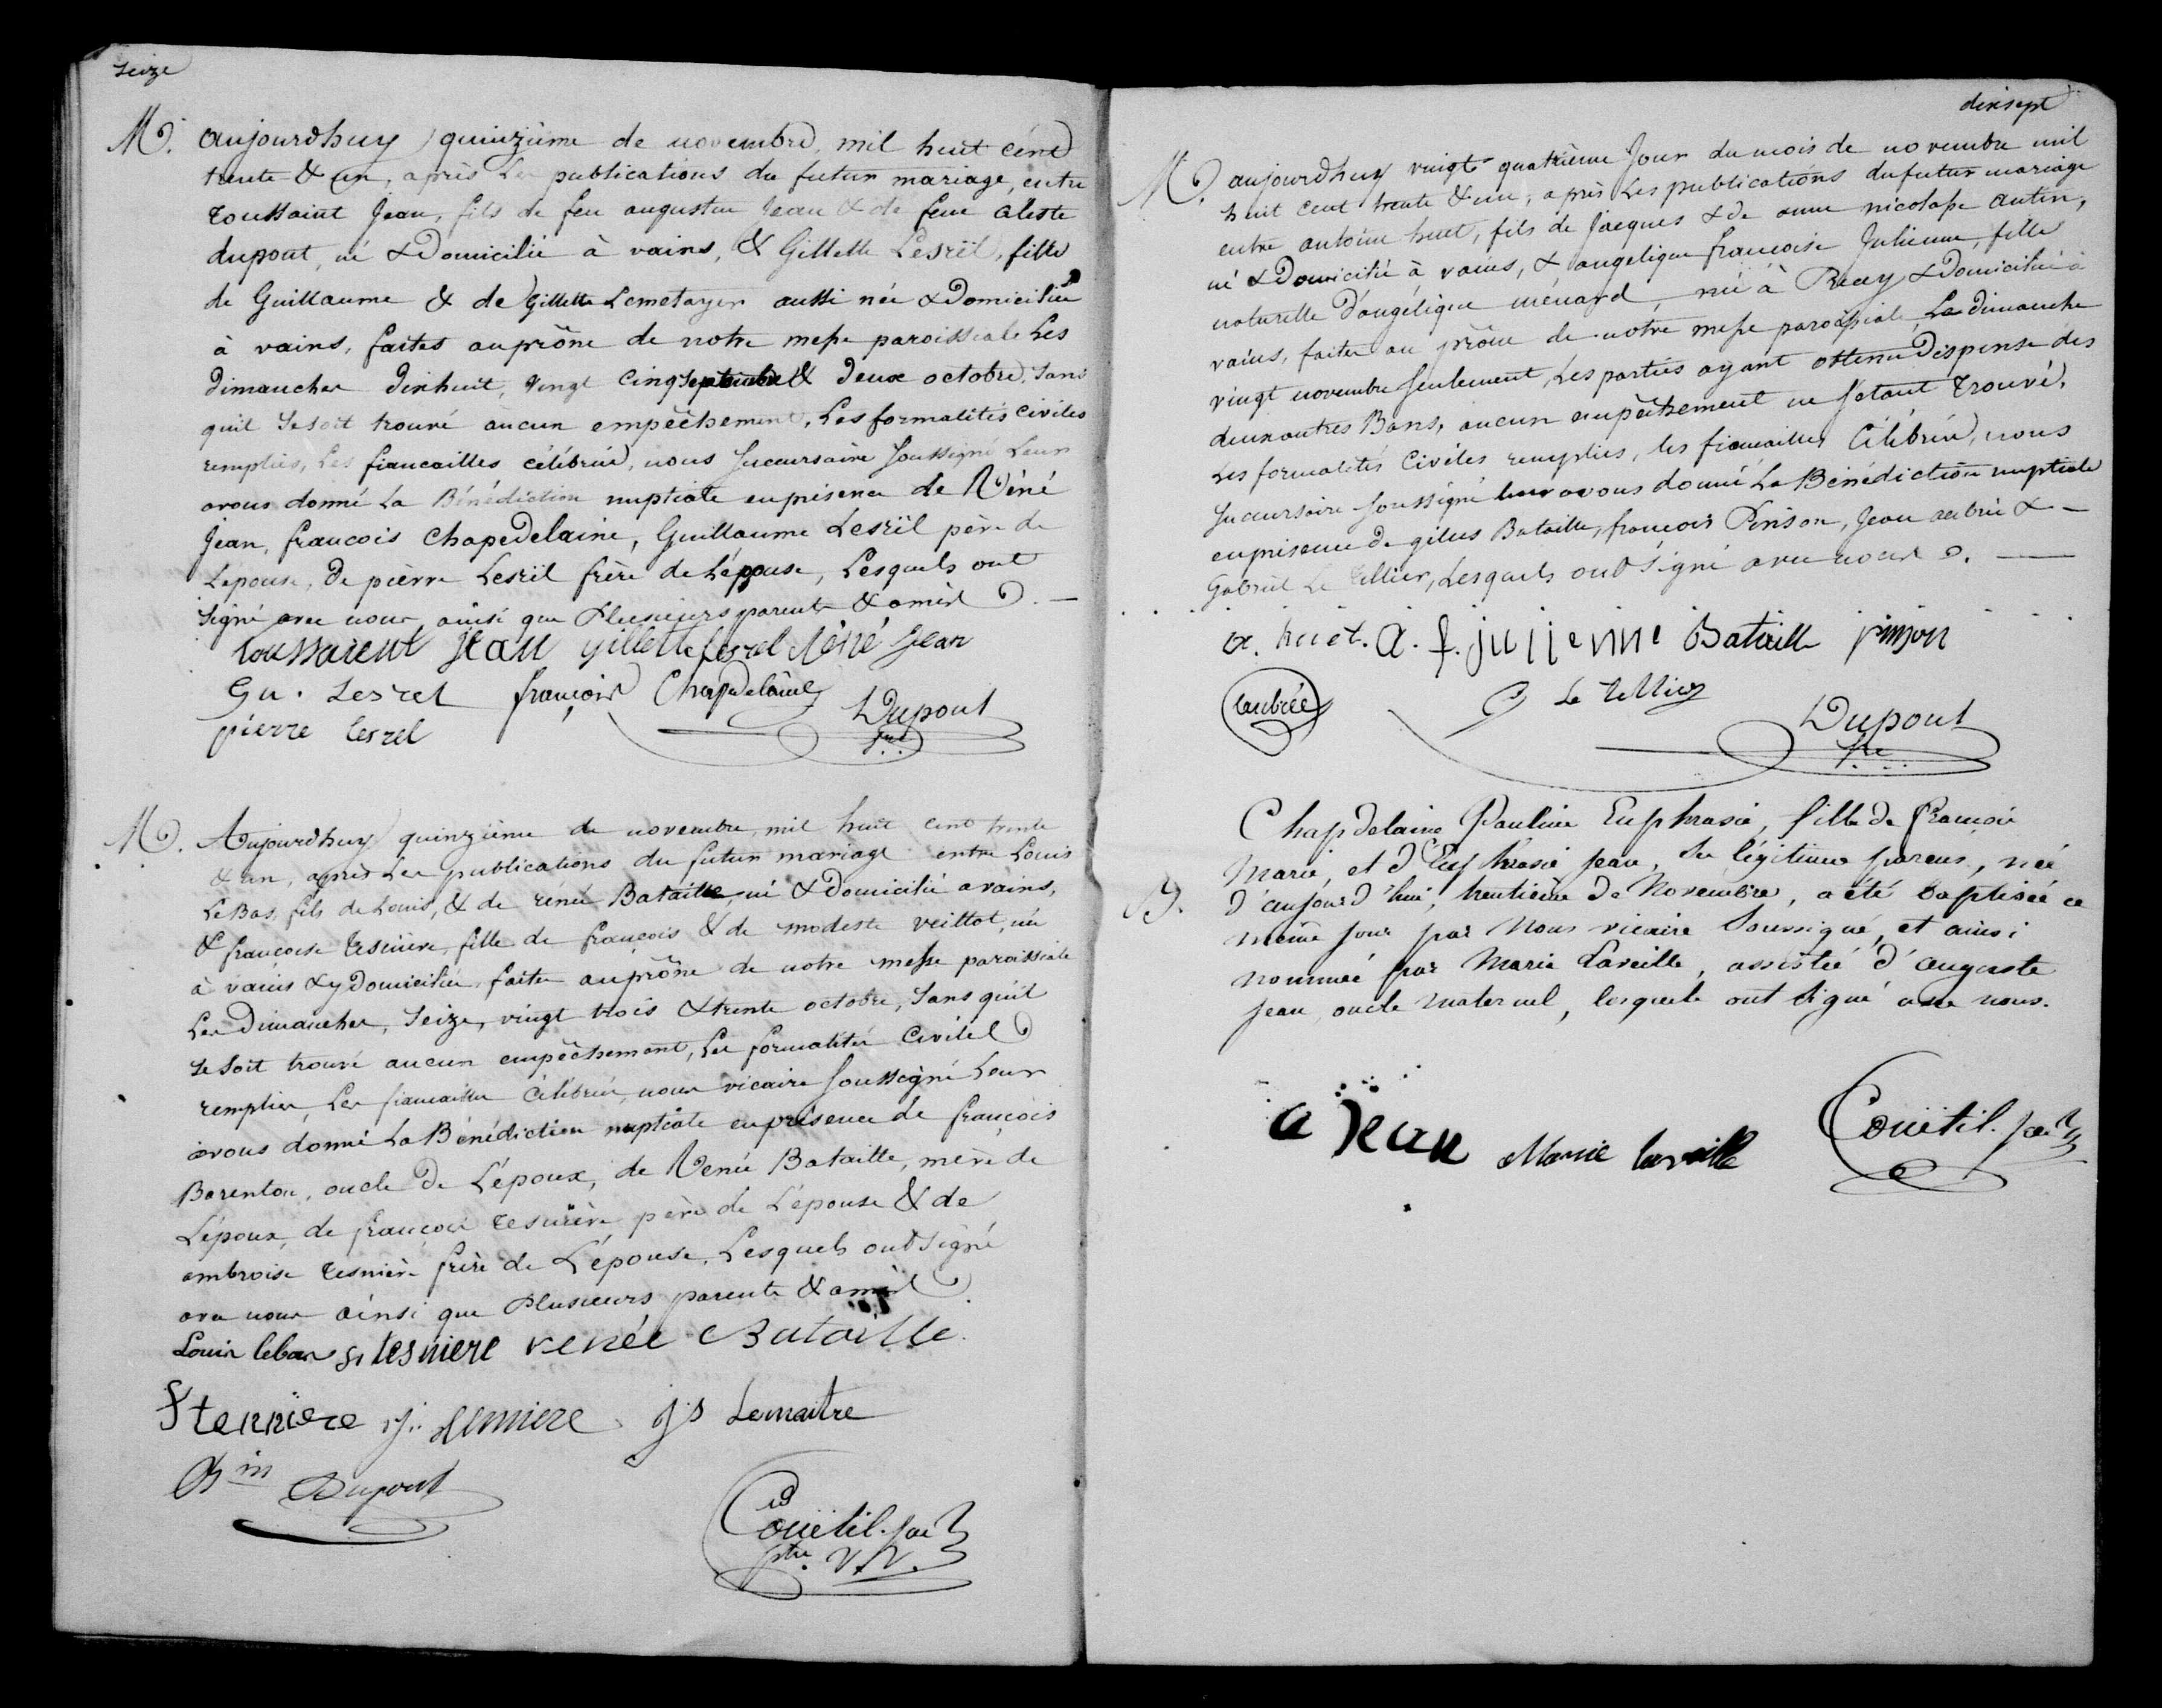 seize
M. aujourdhuy quinzième de novembre mil huit cent
trente & un, après Les publications du futur mariage, entre
toussaint Jean, fils de feu augustin Jean & de feue celeste
dupont, né & Domicilié à vains, & Gillette Lesrël, fille
de Guillaume & de Gillette Lemetayer aussi née & Domiciliée
à vains, faites au prône de notre messe paroissiale Les
dimanches dixhuit, vingt cinq septembre & deux octobre, sans
quil se soit trouvé aucun empêchement, Les formalités civiles
remplies, Les fiancailles célébrées, nous succursaire soussigné Leur
avons donné La Bénédiction nuptiale en présence de Réné
Jean, francois Chapedelaine, Guillaume Lesrël père de
Lépouse, de pièrre Lesrël frère de Lépouse, Lesquels ont
signé avec nous, ainsi que Plusieurs parents & amis
toussaient jean gillette lesrel réné jean
Gu. Lesrel françois Chapdelaine
pierre lesrel Dupont
M. Aujourdhuy quinzième de novembre mil huit cent trente
& un, après Les publications du futur mariage entre Louis
LeBas, fils de Louis, & de rénée Bataille, né & Domicilié a vains,
& françoise tesnière, fille de françois & de modeste veillot, née
à vains & y Domiciliée, faites au prône de notre messe paroissiale
Les Dimanches, Seize, vingt trois & trente octobre, sans qu'il
se soit trouvé aucun empêchement, Les formalités civiles
remplies, Les fiancailles célébrées, nous vicaire soussigné Leur
avons donné La Bénédiction nuptiale en présence de françois
Barenton, oncle de L'époux, de Renée Bataille, mère de
L'époux, de françois tesnière père de L'épouse & de
ambroise tesnière frère de L'épouse, Lesquels ont signé
avec nous ainsi que Plusieurs parents & amis
Louis lebas tesniere renée Bataille
tenniere Lemaitre
Dupont
Couëtil
ptre
dixsept
M. aujourdhuy vingt quatrième Jour du mois de novembre mil
huit cent trente & un, après Les publications du futur mariage
entre antoine huet, fils de Jacques & de anne nicolasse autin,
né & Domicilié à vains, & angelique françoise Julienne, fille
naturelle d'angélique ménard, née à Rcey & Domiciliée à
vains, faites au prône de notre messe paroissiale, Le dimanche
vingt novembre seulement, Les parties ayant obtenu Dispense des
deux autres Bans, aucun empêchement ne s'étant trouvé,
Les formalités civiles remplies, les fiancailles célébrées, nous
succursaire soussigné leur avons donné La Bénédiction nuptiale
en présence de gilles Bataille, françois Pinson, Jean aubrée &
Gabriël Le tellier, Lesquels ont signé avec nous
a. huet. a. f. julienne Bataille pinson
aubrée G Le tellier
Dupont
Chapdelaine Pauline Euphrasie, fille de François
Marie, et d'Euphrasie Jean, ses légitimes parens, née
B. d'aujourd'hui, trentième de Novembre, a été baptisée ce
même jour par Nous vicaire Soussigné, et ainsi
nommée par Marie Laveille, assistée d'auguste
Jean, oncle maternel, lesquels ont signé avec nous.
a jean Marie laveille Couëtil